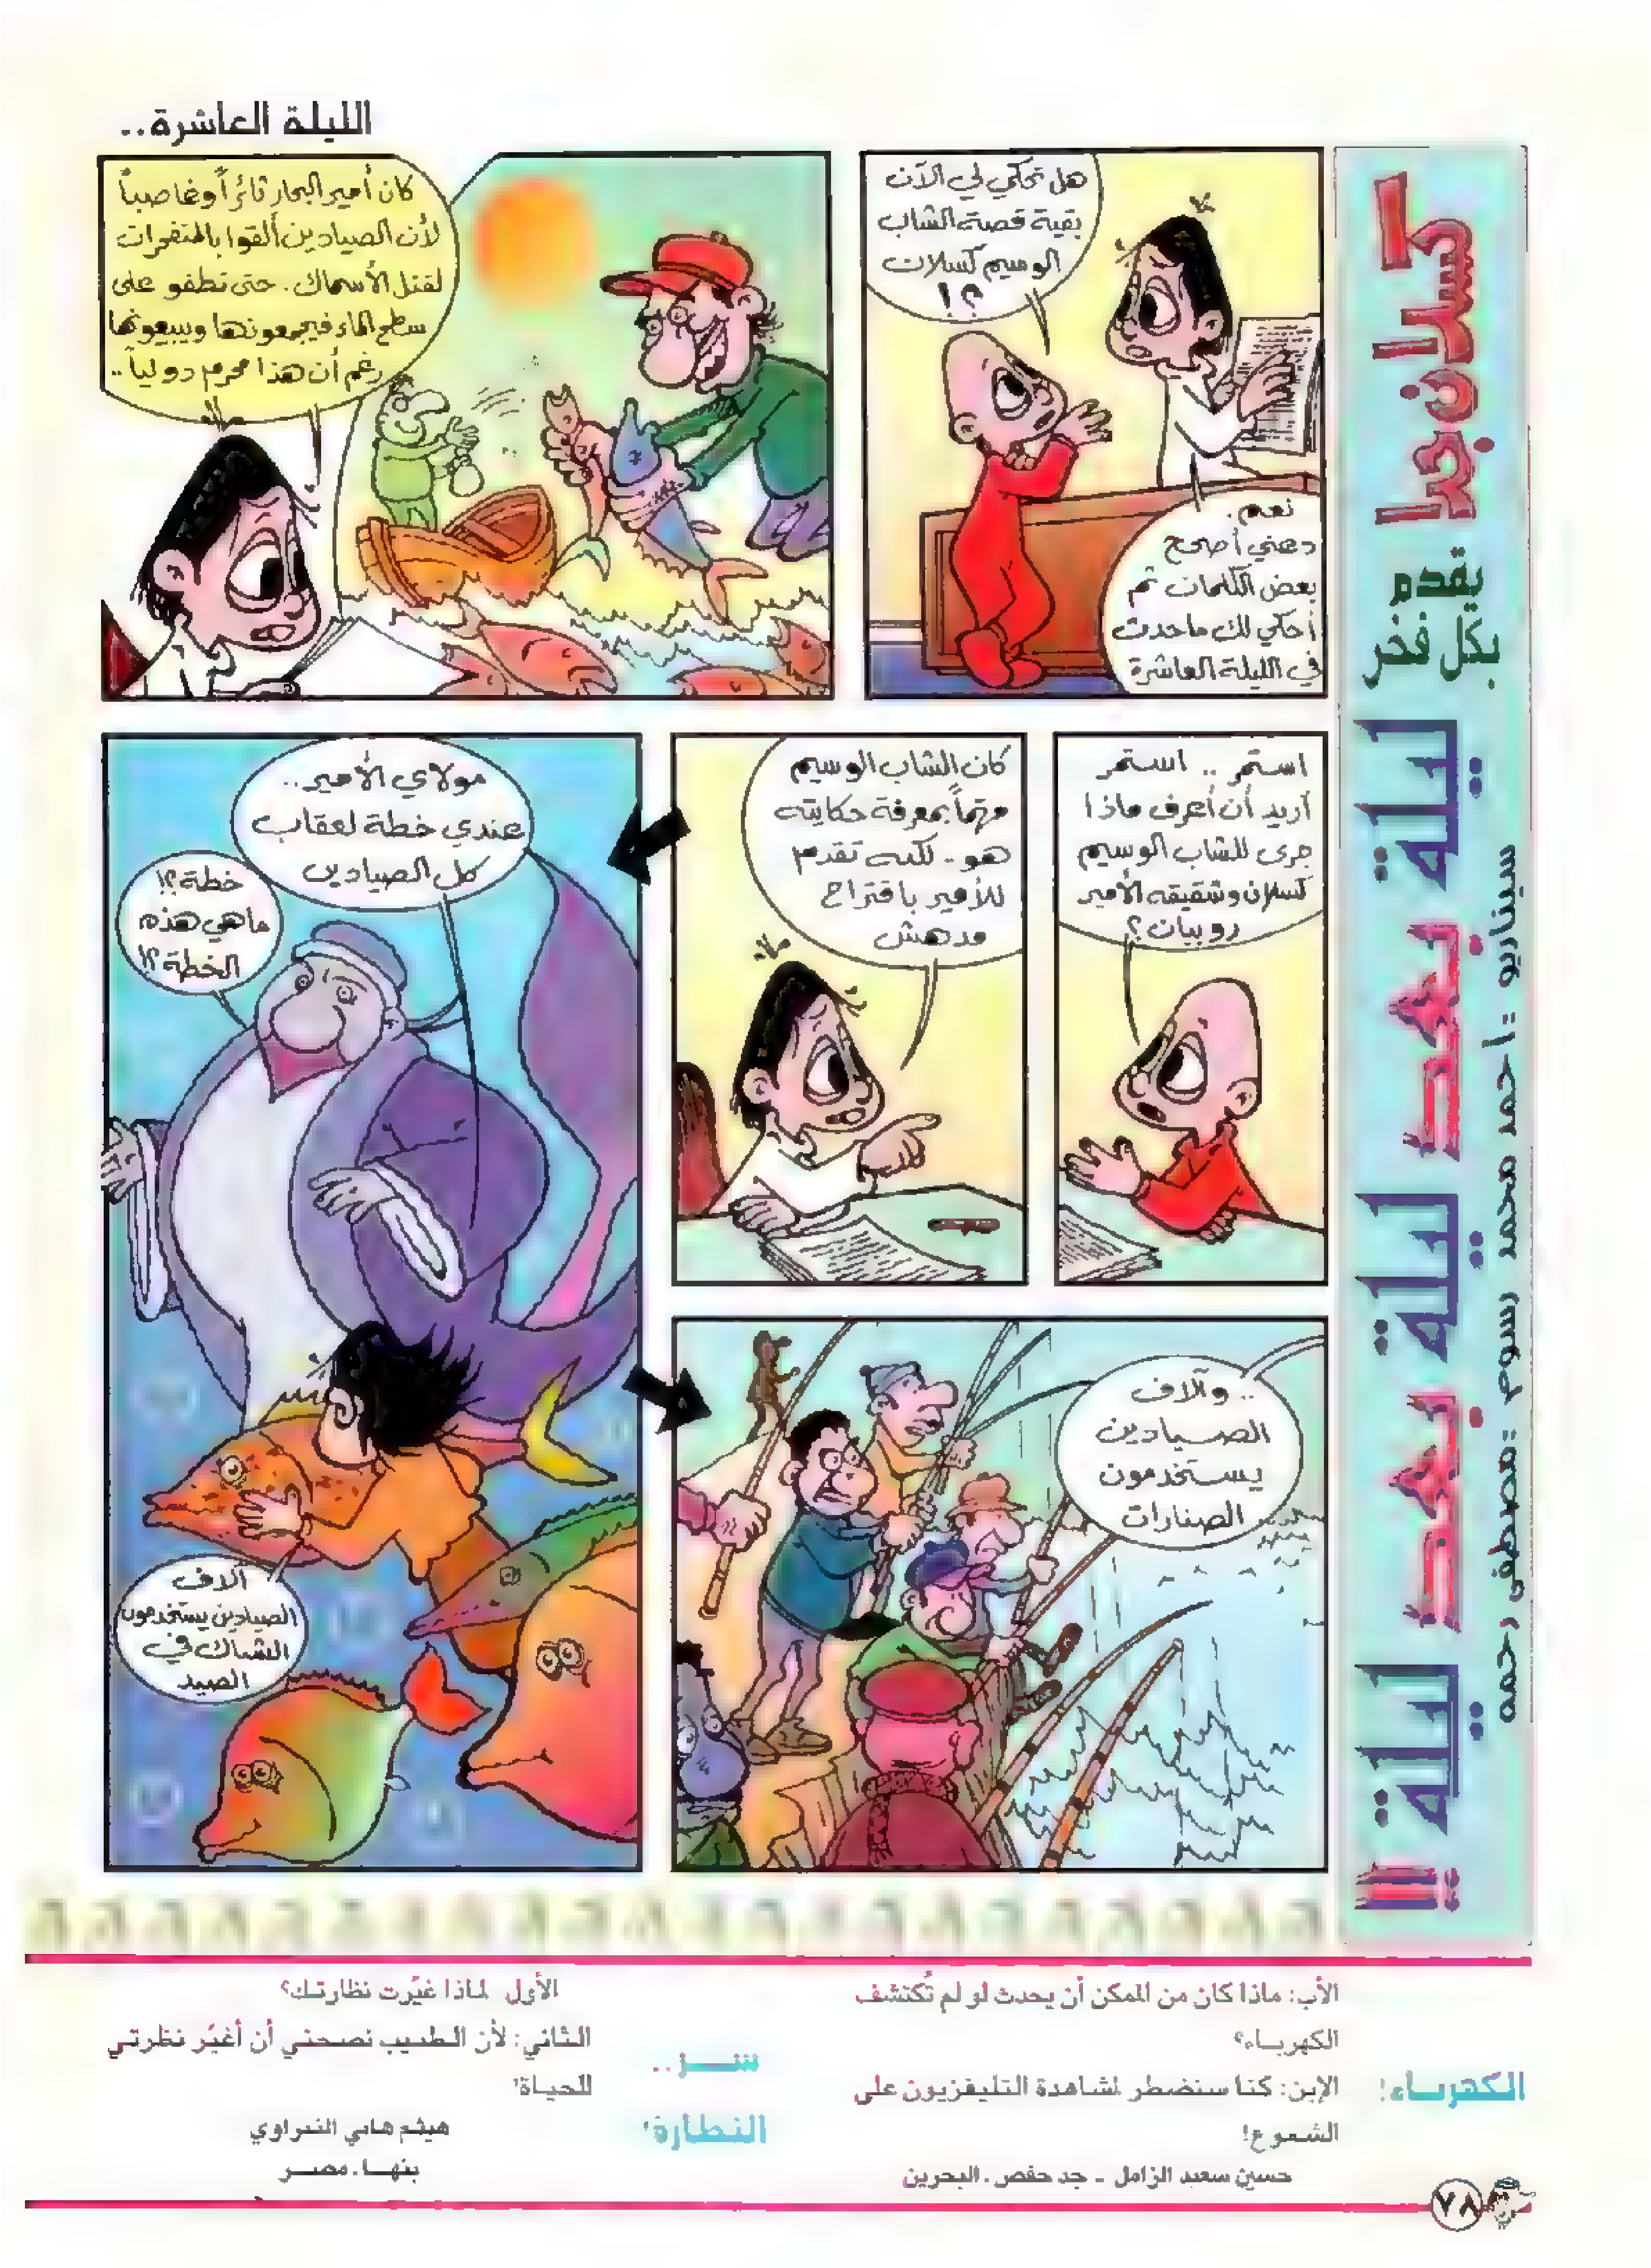 كسلان جدا
يقدم
بكل فخر
ليلة بعد ليلة بعد ليلة !!
سيناريو : أحمد محمد رسوم : مصطفى رحمه
الليلة العاشرة..
هل تحكي لي الآن
بقية قصة الشاب
الوسيم كسلان
؟!
نعم.
دعني أصحح
بعض الكلمات ثم
أحكي لك ما حدث
في الليلة العاشرة
كان أمير البحار ثائراً وغاضباً
لأن الصيادين ألقوا بالمتفجرات
لقتل الأسماك. حتى تطفو على
سطح الماء فيجمعونها ويبيعونها
رغم أن هذا محرم دولياً..
استمر .. استمر
أريد أن أعرف ماذا
جرى للشاب الوسيم
كسلان وشقيقه الأمير
روبيان؟
كان الشاب الوسيم
مهتماً بمعرفة حكايته
هو.. لكنه تقدم
للأمير باقتراح
مدهش
مولاي الأمير..
عندي خطة لعقاب
كل الصيادين
خطة؟!
ما هي هذه
الخطة؟!
آلاف
الصيادين يستخدمون
الشباك في
الصيد
.. وآلاف
الصيادين
يستخدمون
الصنارات
الكهرباء!
الأب: ماذا كان من الممكن أن يحدث لو لم تُكتشف
الكهرباء؟
الإبن: كنا سنضطر لمشاهدة التليفزيون على
الشموع!
حسين سعيد الزامل - جد حفص . البحرين
سر..
النظارة!
الأول لماذا غيّرت نظارتك؟
الثاني: لأن الطبيب نصحني أن أغيّر نظرتي
للحياة!
هيثم هاني الشعراوي
بنها. مصر
٧٨